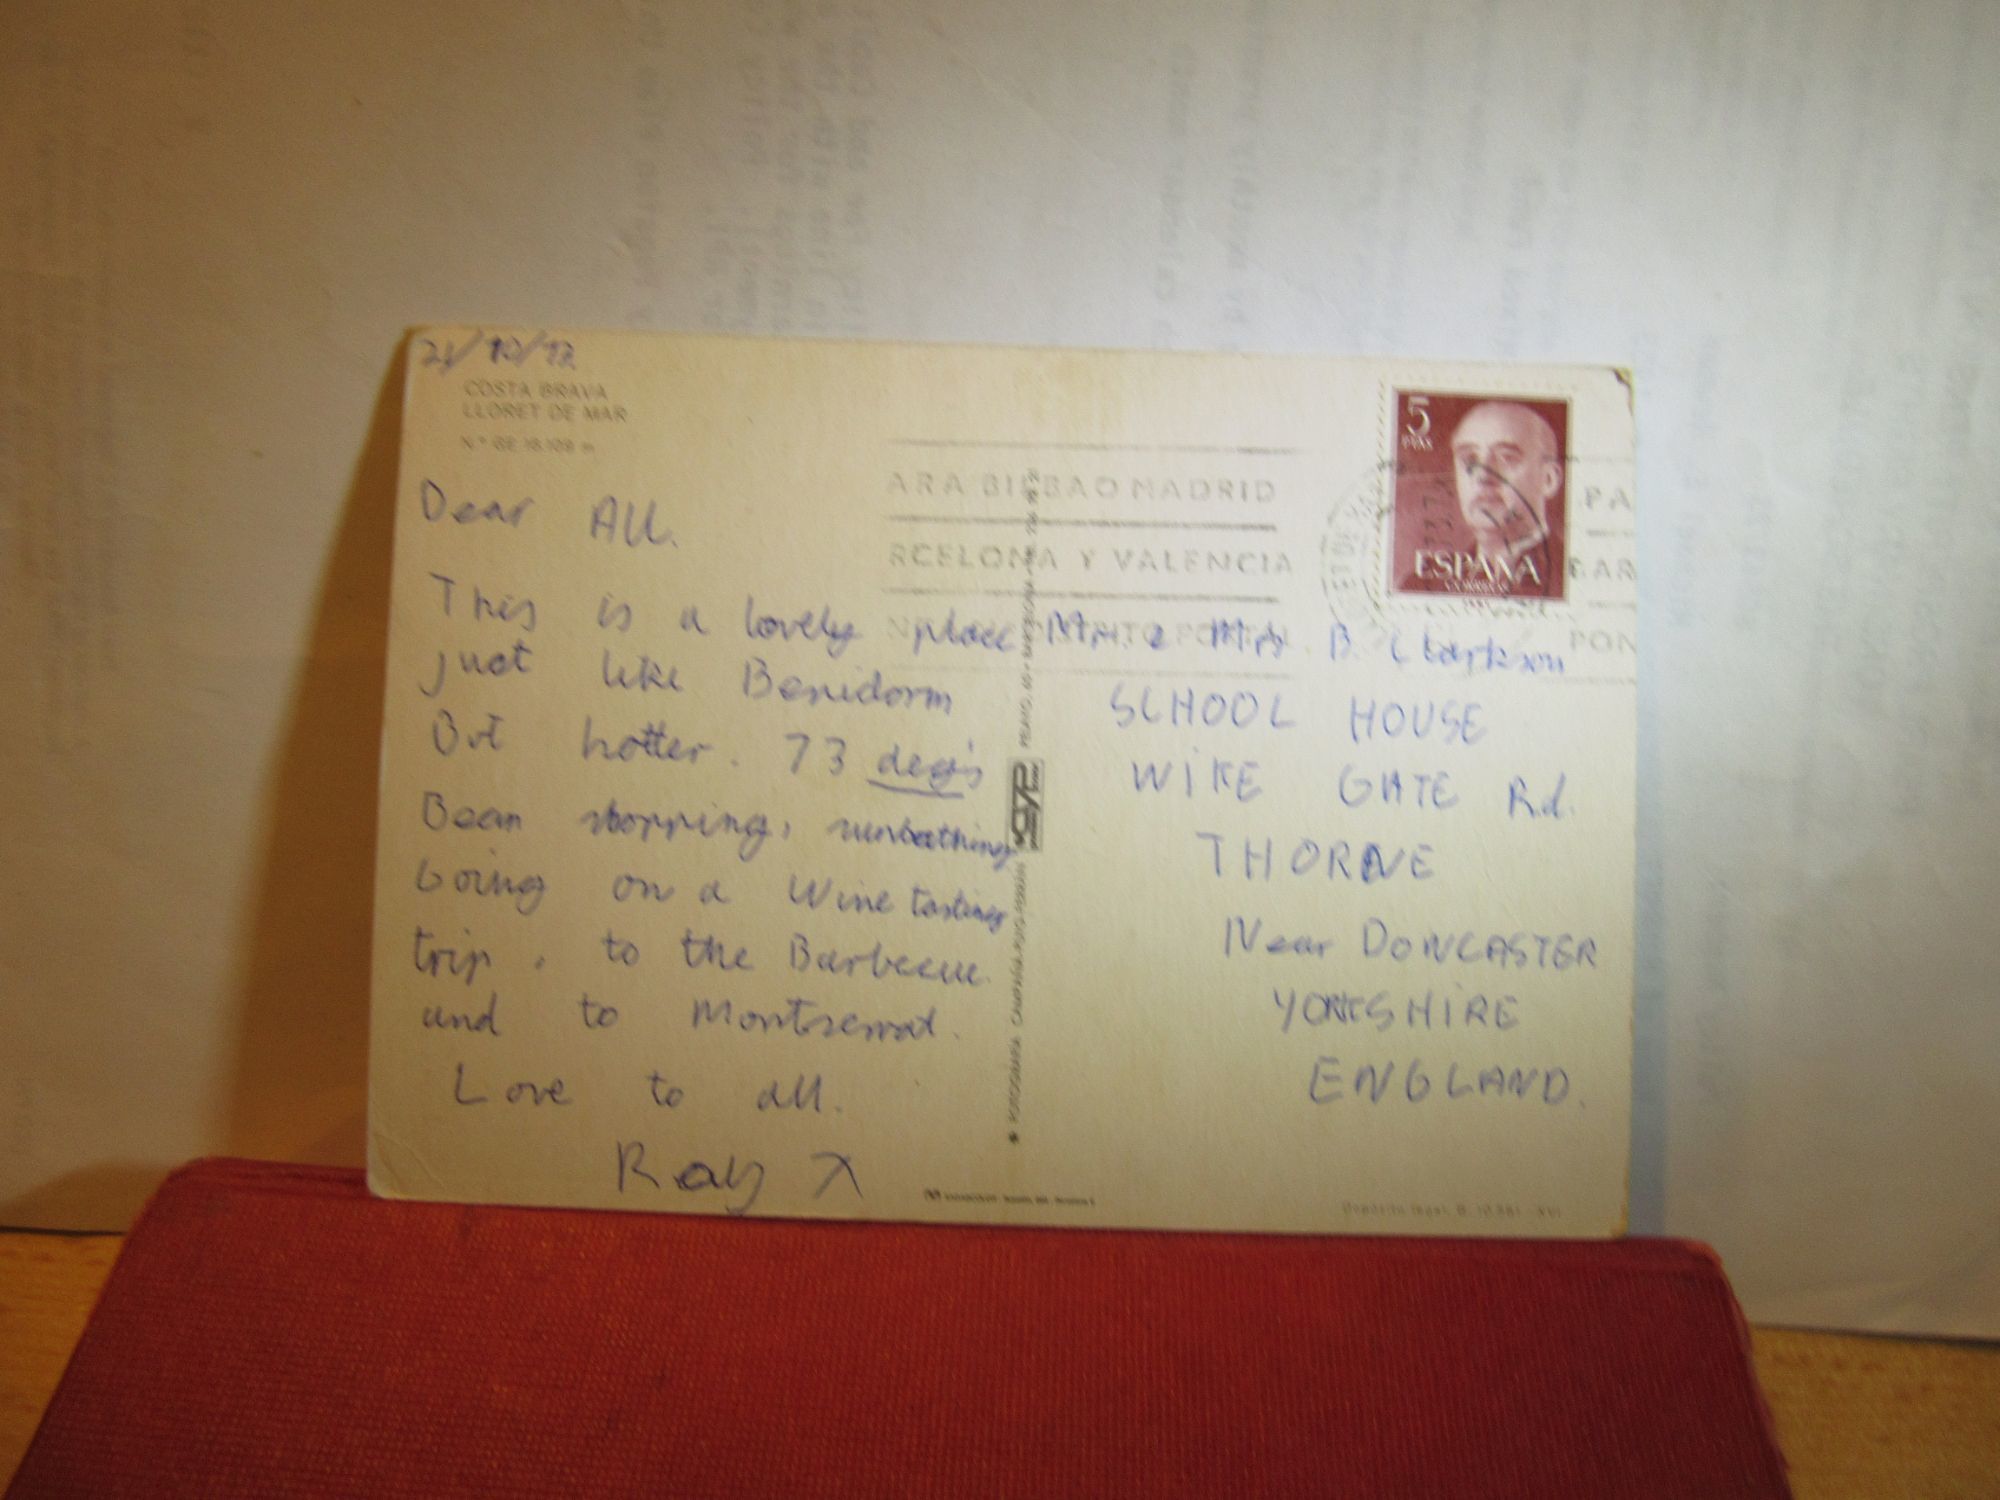 21/10/72
COSTA BRAVA
LLORET DE MAR
Dear All.
This is a lovely place
just like Benidorm
But hotter. 73 deg's
Been shopping, sunbathing
Going on a Wine tasting
trip, to the Barbecue
and to Montserrat.
Love to all.
Ray X
ARA BILBAO MADRID
RCELONA Y VALENCIA
PA
BAR
PON
5
PTAS
ESPAÑA
CORREOS
Mr. & Mrs. B. Clarkson
SCHOOL HOUSE
WIKE GATE Rd.
THORNE
Near DONCASTER
YORKSHIRE
ENGLAND.